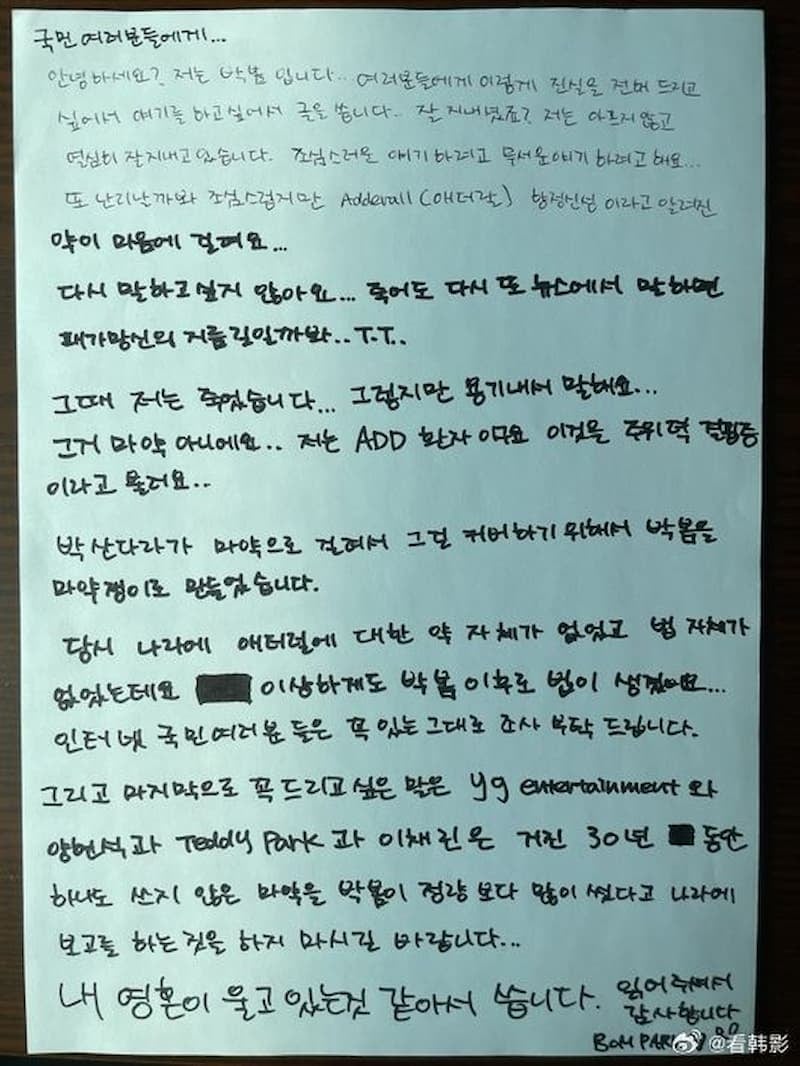 국민 여러분들에게...
안녕하세요? 저는 박봄 입니다.. 여러분들에게 이렇게 진실을 전해 드리고
싶어서 얘기를 하고싶어서 글을 씁니다.. 잘 지내셨죠? 저는 아프지 않고
열심히 잘지내고 있습니다. 조심스러운 얘기 하려고 무서운얘기 하려고 해요...
또 난리날까봐 조심스럽지만 Adderall (애더랄) 향정신성 이라고 알려진
약이 마음에 걸려요...
다시 말하고싶지 않아요... 죽어도 다시 또 뉴스에서 말하면
패가망신의 지름길일까봐.. T.T..
그때 저는 죽었습니다... 그렇지만 용기내서 말해요...
그거 마약 아니에요.. 저는 ADD 환자 이구요 이것은 주위력 결핍증
이라고 불려요..
박산다라가 마약으로 걸려서 그걸 커버하기 위해서 박봄을
마약쟁이로 만들었습니다.
당시 나라에 애터럴에 대한 약 자체가 없었고 법 자체가
없었는데요 이상하게도 박봄 이후로 법이 생겼어요...
인터넷 국민여러분 들은 꼭 있는그대로 조사 부탁 드립니다.
그리고 마지막으로 꼭 드리고 싶은 말은 yg entertainment 와
양현석과 Teddy Park 과 이채린은 거진 30년 동안
하나도 쓰지 않은 마약을 박봄이 정량 보다 많이 썼다고 나라에
보고를 하는것을 하지 마시길 바랍니다...
내 영혼이 울고 있는것 같아서 씁니다. 읽어주셔서
감사합니다
BOM PARK
@看韩影